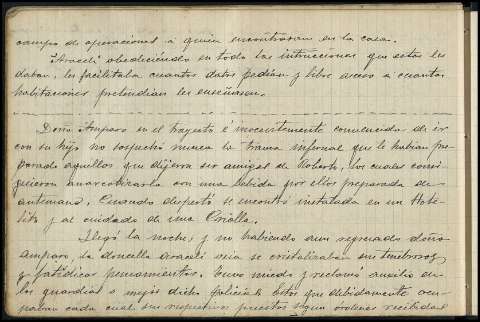 campo de operaciones a quien encontraran en la casa.
Araceli obedeciendo en todo las intrucciones que estos les
daban, les facilitaba cuantos datos pedian y libre acceso a cuantas
habitaciones pretendian les enseñasen.
Doña Amparo en el trayecto é inocentemente convencida de ir
con su hijo no sospechó nunca la trama infernal que le habian pre-
parado aquellos que dijeran ser amigos de Roberto, los cuales consi-
guieron anarcotizarla con una bebida por ellos preparada de
antemano. Cuando despertó se encontró instalada en un Hote-
lito y al cuidado de una Criolla.
Llegó la noche, y no habiendo aun regresado doña
Amparo, la doncella Araceli veia se cristalizaban sus tenebrosos
y fatidicos pensamientos. Tuvo miedo y reclamó auxilio de
los guardias o mejor dicho Policias. Estos que debidamente ocu-
paban cada cual sus respectivos puestos segun ordenes recibidas